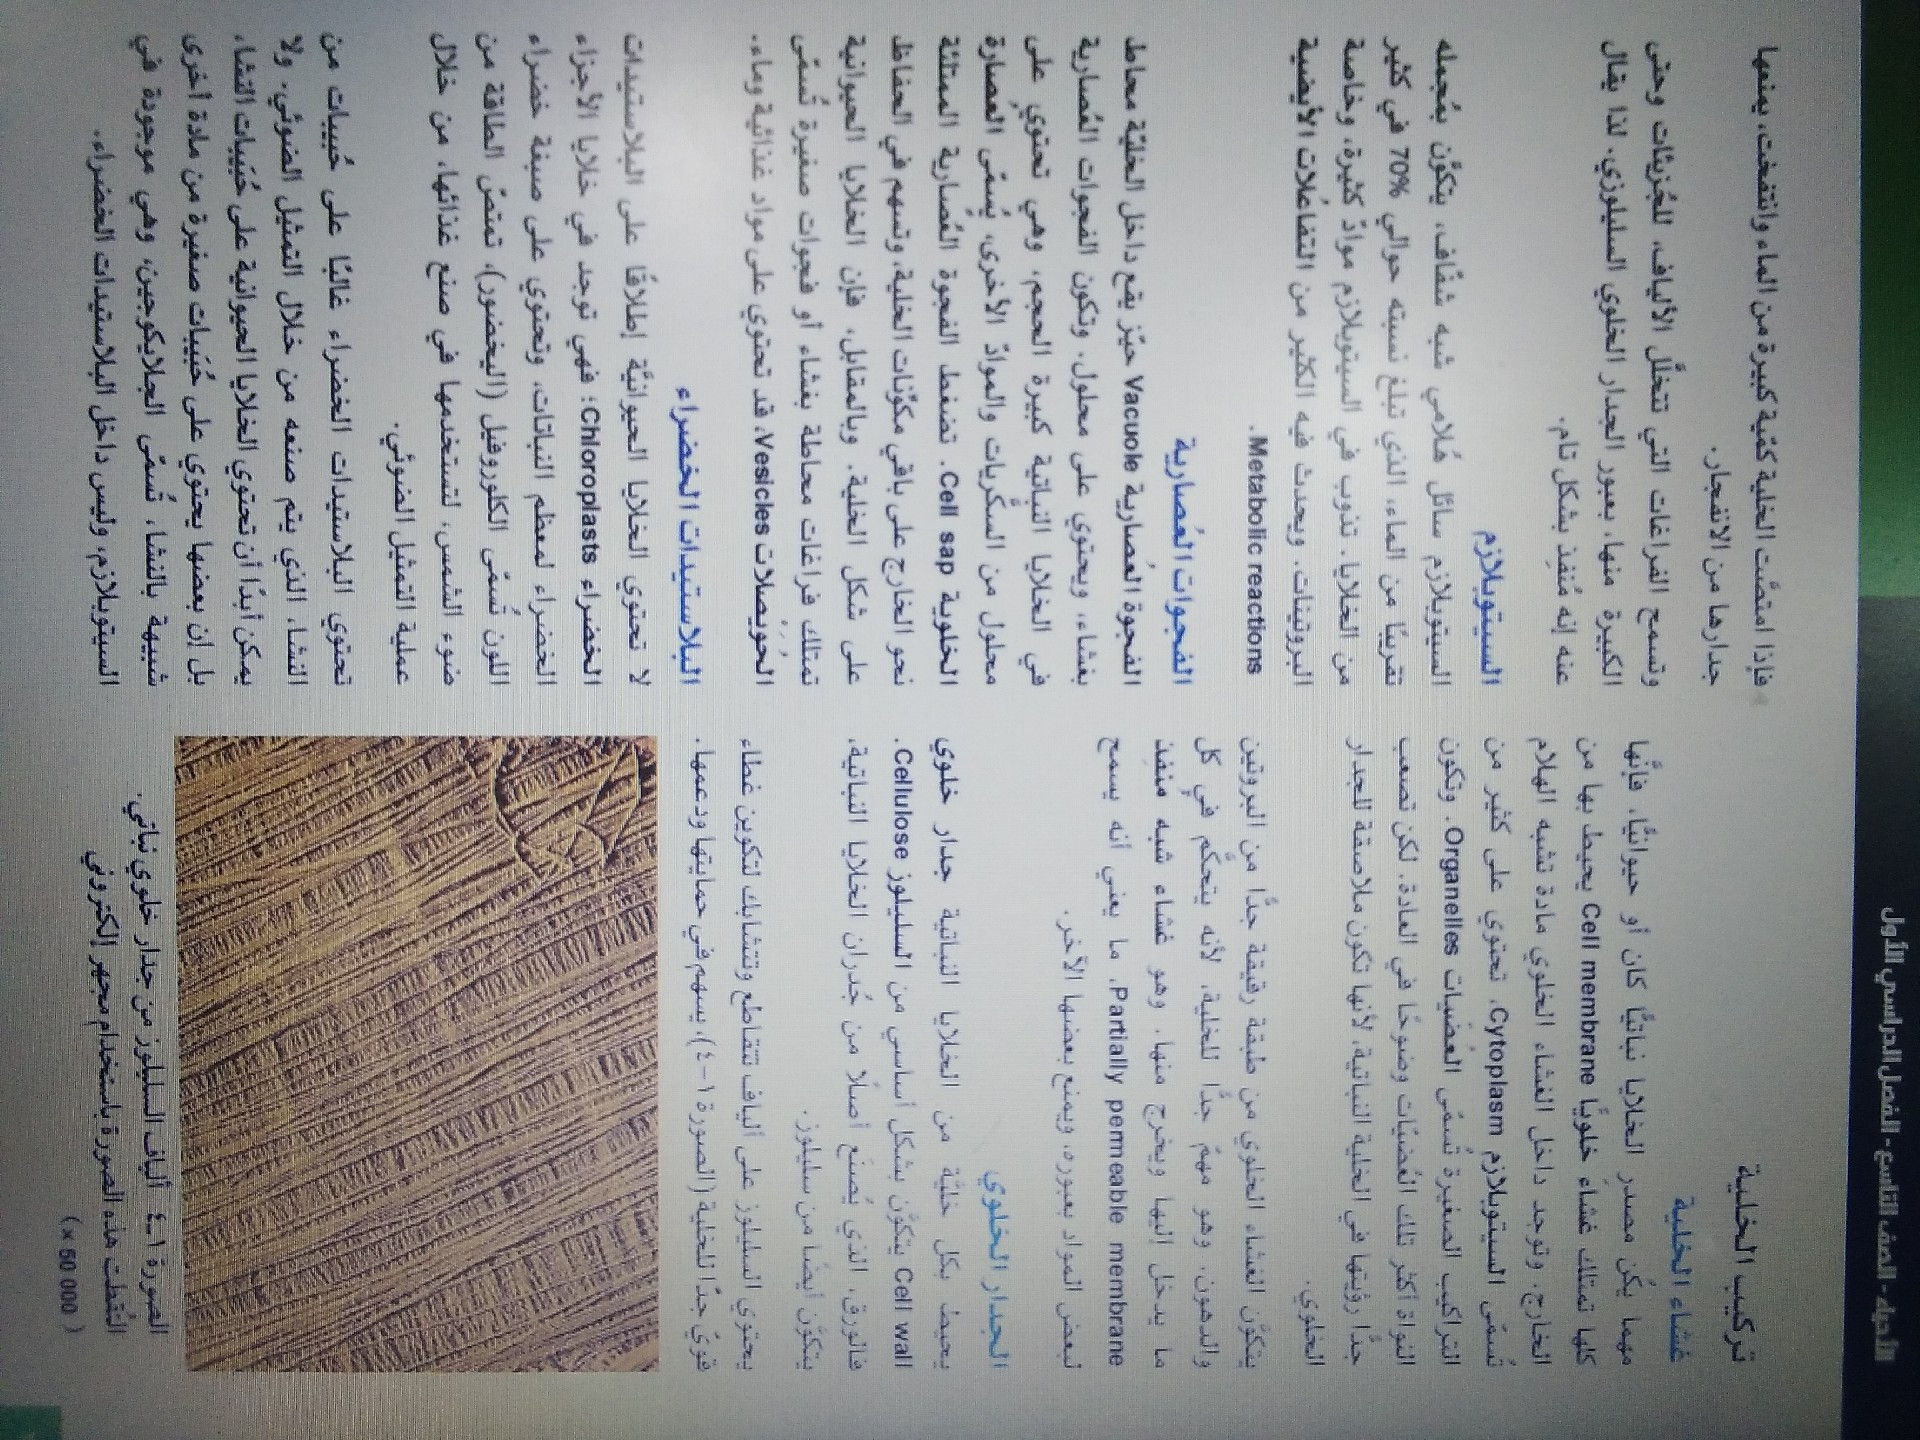 الأحياء - الصف التاسع - الفصل الدراسي الأول
تركيب الخلية
غشاء الخلية
مهما يكُن مصدر الخلايا نباتيًّا كان أو حيوانيًّا، فإنّها
كلها تمتلك غشاءً خلويًّا Cell membrane يحيط بها من
الخارج. وتوجد داخل الغشاء الخلوي مادة تشبه الهلام
تُسمّى السيتوبلازم Cytoplasm، تحتوي على كثير من
التراكيب الصغيرة تُسمّى العضيّات Organelles. وتكون
النواة أكثر تلك العُضيّات وضوحًا في العادة. لكن تصعب
جدًّا رؤيتها في الخلية النباتية، لأنها تكون ملاصقة للجدار
الخلوي.
يتكوّن الغشاء الخلوي من طبقة رقيقة جدًّا من البروتين
والدهون. وهو مهمّ جدًّا للخلية، لأنه يتحكّم في كل
ما يدخل إليها ويخرج منها. وهو غشاء شبه منفِذ
Partially permeable membrane. ما يعني أنه يسمح
لبعض المواد بعبوره، ويمنع بعضها الآخر.
الجدار الخلوي
يحيط بكل خليّة من الخلايا النباتية جدار خلوي
Cell wall يتكوّن بشكل أساسي من السليلوز Cellulose.
فالورق، الذي يُصنَع أصلًا من جُدران الخلايا النباتية،
يتكوّن أيضًا من سليلوز.
يحتوي السليلوز على ألياف تتقاطع وتتشابك لتكوين غطاء
قويّ جدًّا للخلية (الصورة ١-٤)، يسهم في حمايتها ودعمها.
الصورة ١-٤ ألياف السليلوز من جدار خلوي نباتي.
التُقطت هذه الصورة باستخدام مجهر إلكتروني
(x 50 000)
فإذا امتصّت الخلية كمّية كبيرة من الماء وانتفخت، يمنعها
جدارها من الانفجار.
وتسمح الفراغات التي تتخلّل الألياف، للجُزيئات وحتى
الكبيرة منها، بعبور الجدار الخلوي السليلوزي. لذا يقال
عنه إنه مُنفِذ بشكل تام.
السيتوبلازم
السيتوبلازم سائل هُلامي شبه شفّاف، يتكوّن بمُجمله
تقريبًا من الماء، الذي تبلغ نسبته حوالي 70% في كثير
من الخلايا. تذوب في السيتوبلازم موادّ كثيرة، وخاصة
البروتينات. ويحدث فيه الكثير من التفاعُلات الأيضية
Metabolic reactions.
الفجوات العُصارية
الفجوة العصارية Vacuole حيّز يقع داخل الخليّة محاط
بغشاء، ويحتوي على محلول. وتكون الفجوات العُصارية
في الخلايا النباتية كبيرة الحجم، وهي تحتوي على
محلول من السكّريات والموادّ الأخرى، يُسمّى العصارة
الخلوية Cell sap. تضغط الفجوة العُصارية الممتلئة
نحو الخارج على باقي مكوّنات الخلية، وتسهم في الحفاظ
على شكل الخلية. وبالمقابل، فإن الخلايا الحيوانية
تمتلك فراغات محاطة بغشاء أو فجوات صغيرة تُسمّى
الحُوَيصلات Vesicles، قد تحتوي على مواد غذائية وماء.
البلاستيدات الخضراء
لا تحتوي الخلايا الحيوانيّة إطلاقًا على البلاستيدات
الخضراء Chloroplasts؛ فهي توجد في خلايا الأجزاء
الخضراء لمعظم النباتات، وتحتوي على صبغة خضراء
اللون تُسمّى الكلوروفيل (اليخضور)، تمتصّ الطاقة من
ضوء الشمس، لتستخدمها في صنع غذائها، من خلال
عملية التمثيل الضوئي.
تحتوي البلاستيدات الخضراء غالبًا على حُبيبات من
النشا، الذي يتم صنعه من خلال التمثيل الضوئي. ولا
يمكن أبدًا أن تحتوي الخلايا الحيوانية على حُبَيبات النشا،
بل إن بعضها يحتوي على حُبَيبات صغيرة من مادة أخرى
شبيهة بالنشا، تُسمّى الجلايكوجين، وهي موجودة في
السيتوبلازم، وليس داخل البلاستيدات الخضراء.